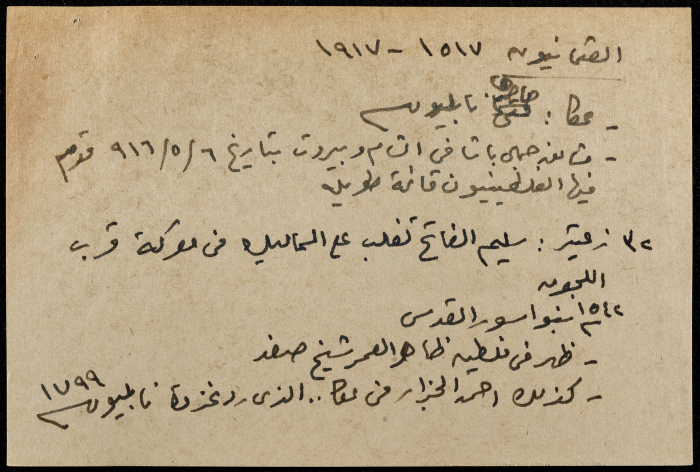 العثمانيون ١٥١٧ - ١٩١٧
- عكا : حاصرها نابليون
- مشانق جمال باشا في الشام وبيروت بتاريخ ٦/٥/٩١٦ قوم
فيها الفلسطينيون قائمة طويلة
٣٢ زعيتر : سليم الفاتح تغلب على المماليك في معركة قرب
اللجون
١٥٤٢ بنوا سور القدس
- ظهر في فلسطين ظاهر العمر شيخ صفد
- كذلك احمد الجزار في عكا .. الذي رد غزوة نابليون ١٧٩٩